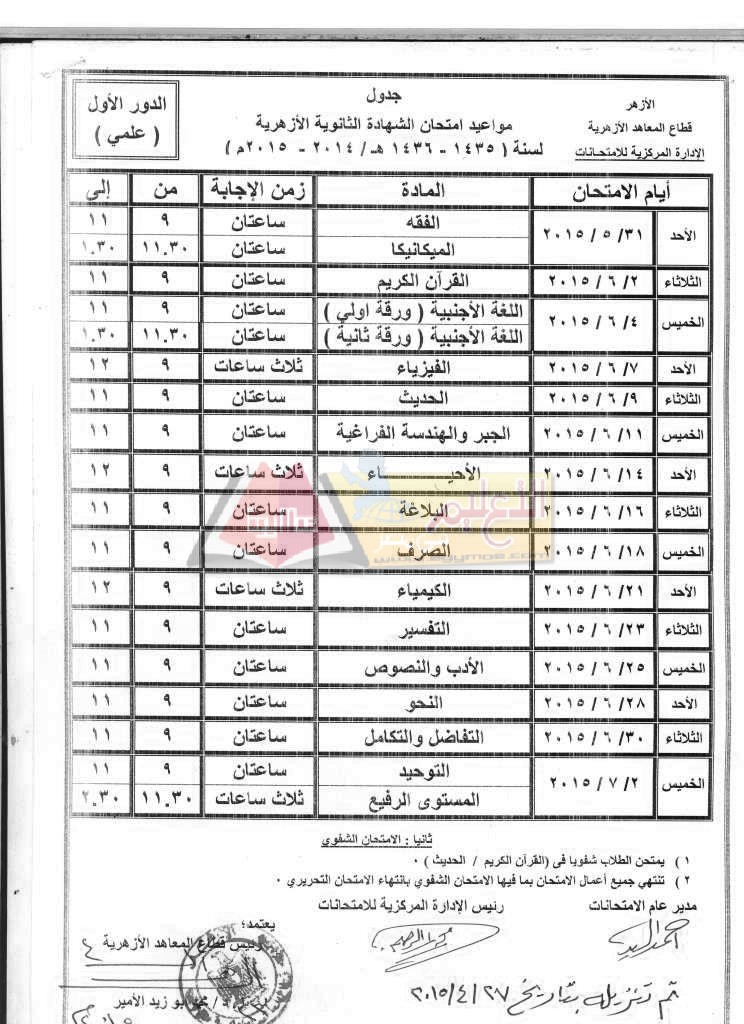 الأزهر
قطاع المعاهد الأزهرية
الإدارة المركزية للامتحانات
جدول
مواعيد امتحان الشهادة الثانوية الأزهرية
لسنة ( ١٤٣٥ - ١٤٣٦ هـ / ٢٠١٤ - ٢٠١٥م )
الدور الأول
( علمي )
أيام الامتحان المادة زمن الإجابة من إلى
الأحد ٣١/ ٥ / ٢٠١٥ الفقه ساعتان ٩ ١١
الميكانيكا ساعتان ١١.٣٠ ١.٣٠
الثلاثاء ٢/ ٦ / ٢٠١٥ القرآن الكريم ساعتان ٩ ١١
الخميس ٤/ ٦ / ٢٠١٥ اللغة الأجنبية ( ورقة اولي ) ساعتان ٩ ١١
اللغة الأجنبية ( ورقة ثانية ) ساعتان ١١.٣٠ ١.٣٠
الأحد ٧/ ٦ / ٢٠١٥ الفيزياء ثلاث ساعات ٩ ١٢
الثلاثاء ٩/ ٦ / ٢٠١٥ الحديث ساعتان ٩ ١١
الخميس ١١/ ٦ / ٢٠١٥ الجبر والهندسة الفراغية ساعتان ٩ ١١
الأحد ١٤/ ٦ / ٢٠١٥ الأحيـــــــاء ثلاث ساعات ٩ ١٢
الثلاثاء ١٦/ ٦ / ٢٠١٥ البلاغة ساعتان ٩ ١١
الخميس ١٨/ ٦ / ٢٠١٥ الصرف ساعتان ٩ ١١
الأحد ٢١/ ٦ / ٢٠١٥ الكيمياء ثلاث ساعات ٩ ١٢
الثلاثاء ٢٣/ ٦ / ٢٠١٥ التفسير ساعتان ٩ ١١
الخميس ٢٥/ ٦ / ٢٠١٥ الأدب والنصوص ساعتان ٩ ١١
الأحد ٢٨/ ٦ / ٢٠١٥ النحو ساعتان ٩ ١١
الثلاثاء ٣٠/ ٦ / ٢٠١٥ التفاضل والتكامل ساعتان ٩ ١١
الخميس ٢/ ٧ / ٢٠١٥ التوحيد ساعتان ٩ ١١
المستوى الرفيع ثلاث ساعات ١١.٣٠ ٢.٣٠
ثانيا : الامتحان الشفوي
١ ) يمتحن الطلاب شفويا فى (القرآن الكريم / الحديث ) ٠
٢ ) تنتهي جميع أعمال الامتحان بما فيها الامتحان الشفوي بانتهاء الامتحان التحريري ٠
مدير عام الامتحانات
رئيس الإدارة المركزية للامتحانات
يعتمد؛
رئيس قطاع المعاهد الأزهرية
أبو زيد الأمير
تم تنزيله بتاريخ ٢٠١٥/٤/٢٧